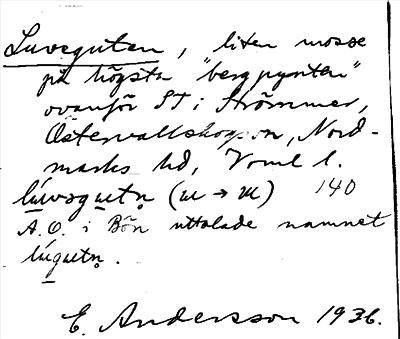 Luveguten, liten mosse
på högsta "bergpynten"
ovanför ST i Strömmer,
Östervallskogen, Nord-
marks hd, Vrml l.
lúvegutn̥ (u → u) 140
A.O. i Bön uttalade namnet
lúgutn̥.
E. Andersson 1936.